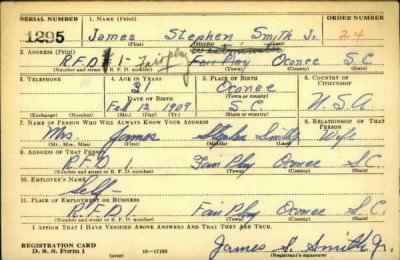 SERIAL NUMBER 1. NAME (Print) ORDER NUMBER
1295 James Stephen Smith Jr. 24
(First) (Middle) (Last)
2. ADDRESS (Print) Westminster
R.F.D #1- Fairplay Fair Play Oconee S.C
(Number and street or R. F. D. number) (Town) (County) (State)
3. TELEPHONE 4. AGE IN YEARS 5. PLACE OF BIRTH 6. COUNTRY OF CITIZENSHIP
31 Oconee
DATE OF BIRTH (Town or county)
Feb 12 1909 S.C. U.S.A
(Exchange) (Number) (Mo.) (Day) (Yr.) (State or country)
7. NAME OF PERSON WHO WILL ALWAYS KNOW YOUR ADDRESS 8. RELATIONSHIP OF THAT PERSON
Mrs James Stephen Smith Wife
(Mr., Mrs., Miss) (First) (Middle) (Last)
9. ADDRESS OF THAT PERSON
R.F.D. 1 Fair Play Oconee S.C.
(Number and street or R. F. D. number) (Town) (County) (State)
10. EMPLOYER'S NAME
Self-
11. PLACE OF EMPLOYMENT OR BUSINESS
R.F.D 1 Fair Play Oconee S.C.
(Number and street or R. F. D. number) (Town) (County) (State)
I AFFIRM THAT I HAVE VERIFIED ABOVE ANSWERS AND THAT THEY ARE TRUE.
REGISTRATION CARD
D. S. S. Form 1 16-17105 James S. Smith Jr.
(Registrant's signature)